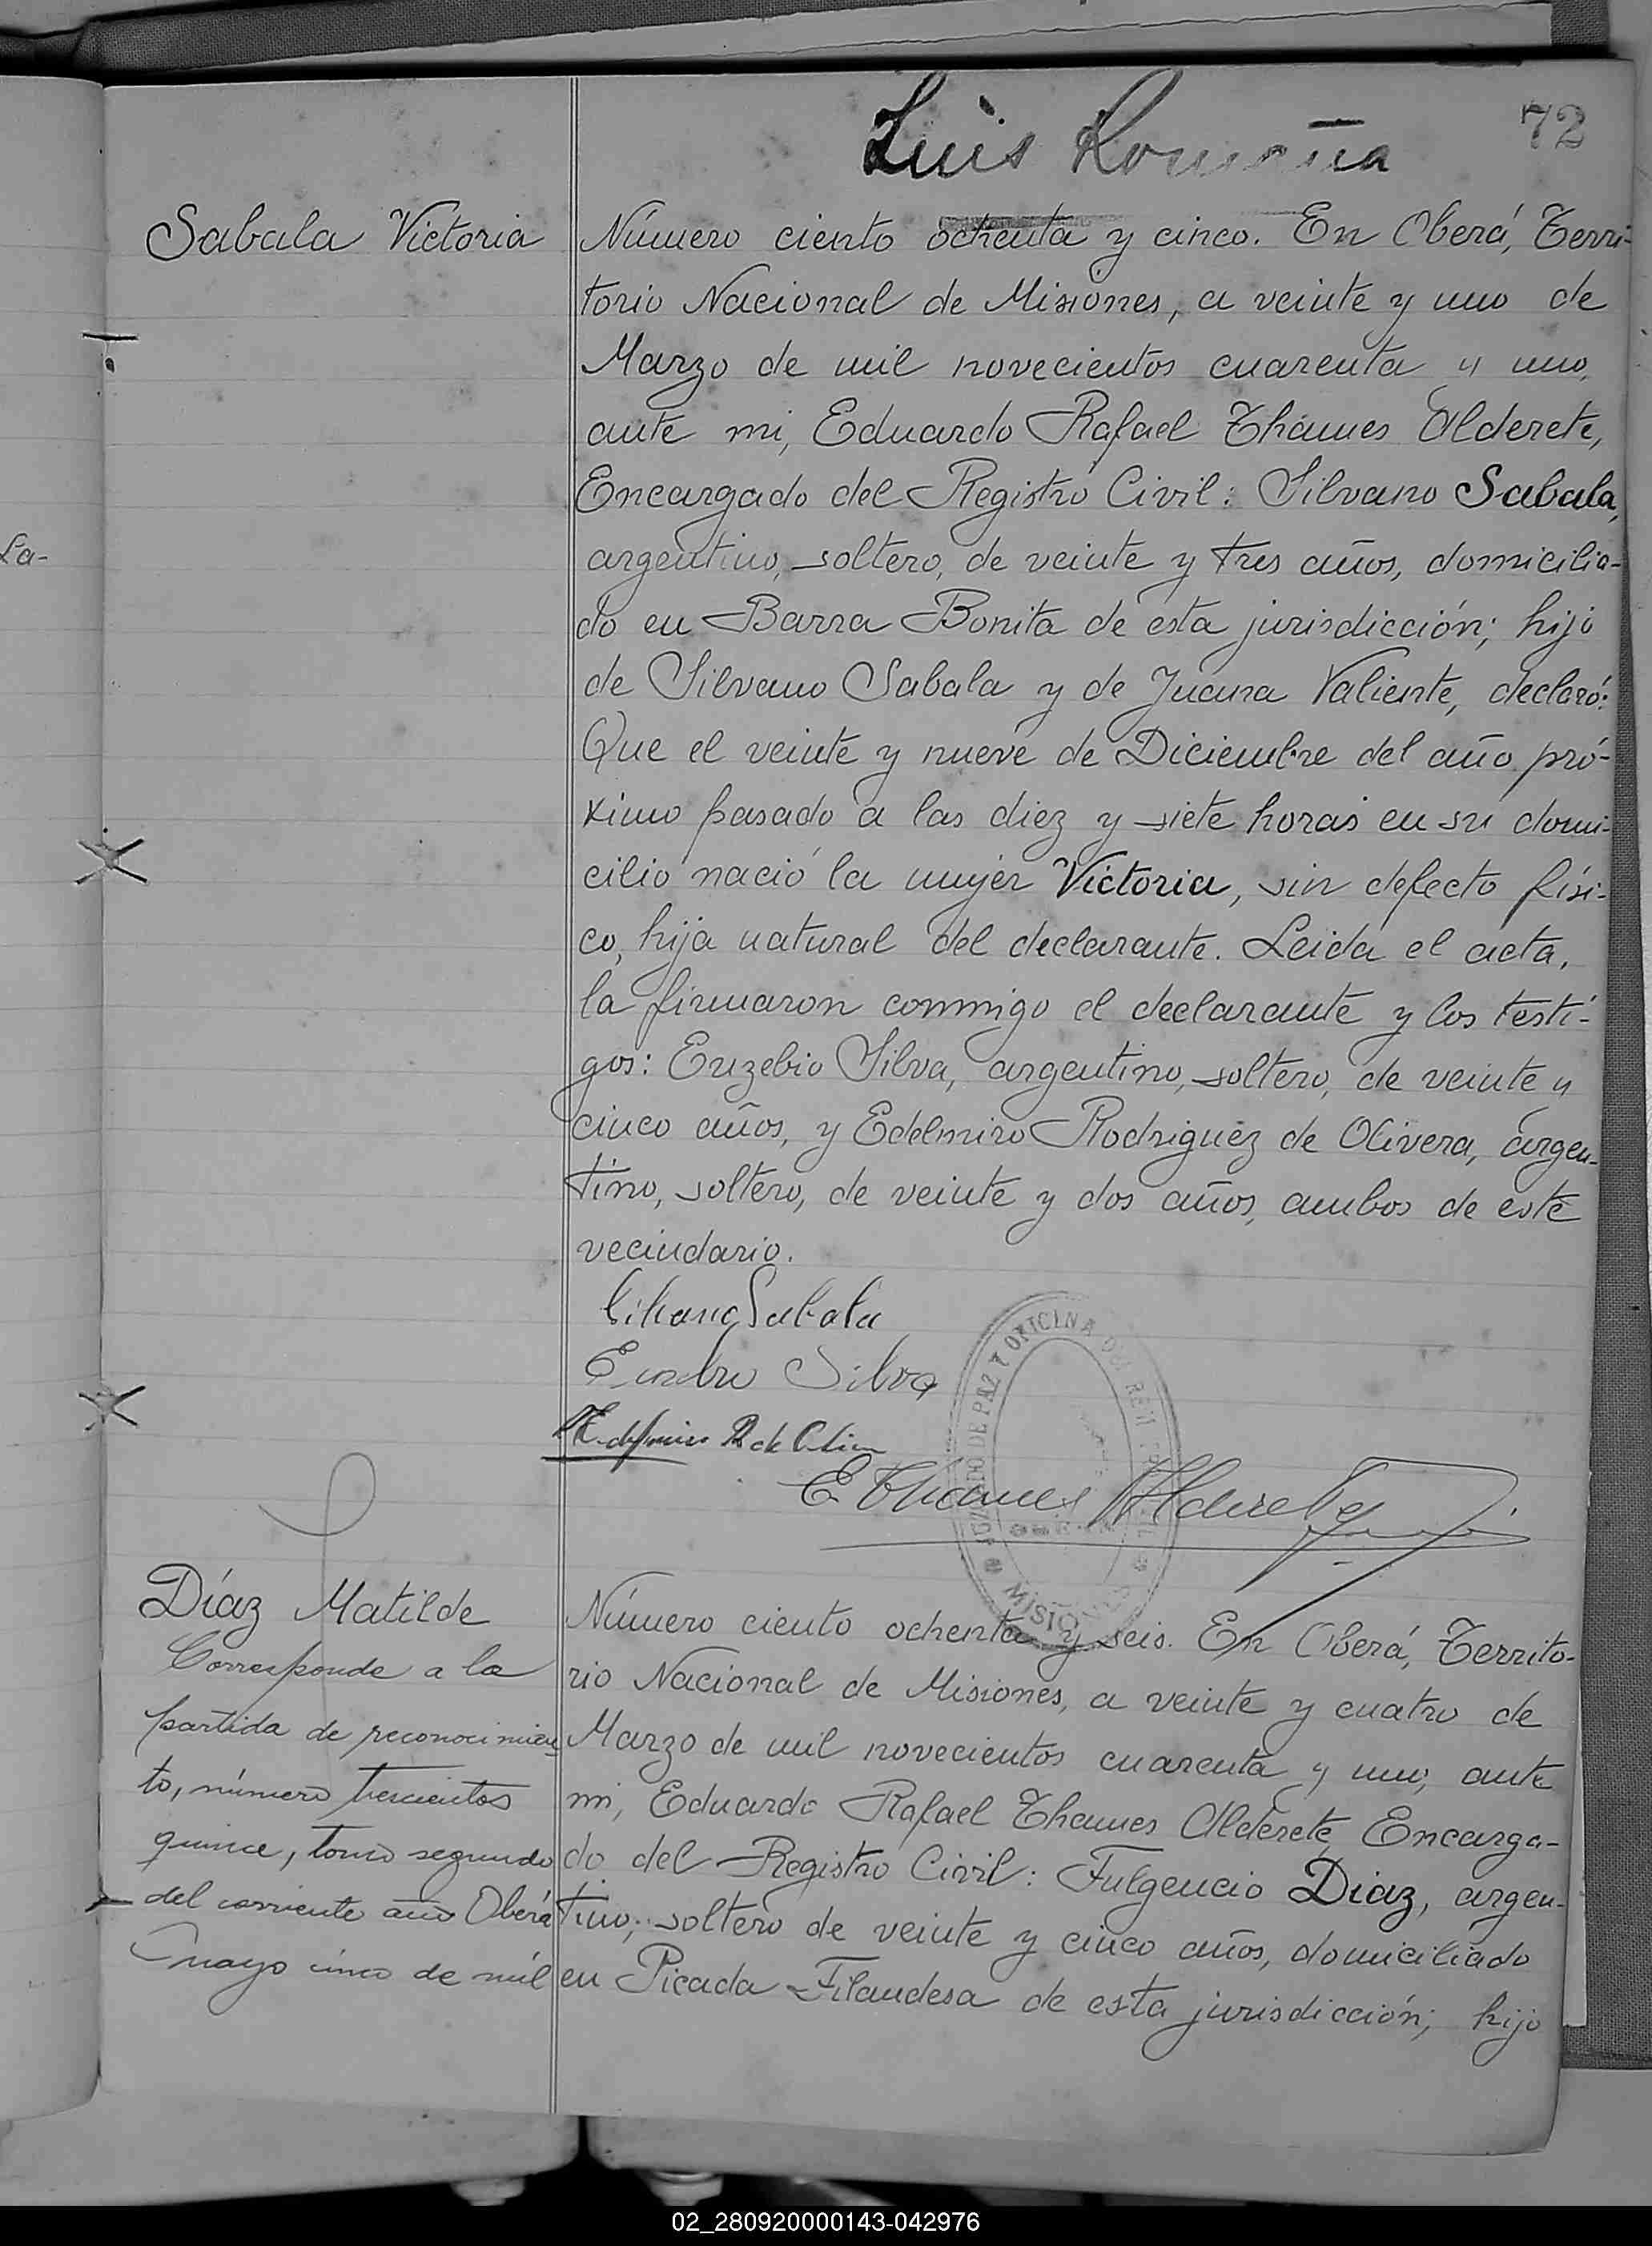 72
Luis
Sabala Victoria
Número ciento ochenta y cinco. En Oberá, Terri-
torio Nacional de Misiones, a veinte y uno de
Marzo de mil novecientos cuarenta y uno,
ante mi, Eduardo Rafael Thames Alderete,
Encargado del Registro Civil: Silvano Sabala,
argentino, soltero, de veinte y tres años, domicilia-
do en Barra Bonita de esta jurisdicción; hijo
de Silvano Sabala y de Juana Valiente, declaró:
Que el veinte y nueve de Diciembre del año pró-
ximo pasado a las diez y siete horas en su domi-
cilio nació la mujer Victoria, sin defecto físi-
co, hija natural del declarante. Leida el acta,
la firmaron conmigo el declarante y los testi-
gos: Euzebio Silva, argentino, soltero, de veinte y
cinco años, y Edelmiro Rodriguez de Olivera, argen-
tino, soltero, de veinte y dos años, ambos de este
vecindario.
Sabala
Silva
E Thames Alderete
MISIONES
La-
Díaz Matilde
Corresponde a la
partida de reconocimien
to, número trescientos
quince, tomo segundo
del corriente año Oberá
mayo cinco de mil
Número ciento ochenta y seis. En Oberá, Territo-
rio Nacional de Misiones, a veinte y cuatro de
Marzo de mil novecientos cuarenta y uno, ante
mi, Eduardo Rafael Thames Alderete, Encarga-
do del Registro Civil: Fulgencio Diaz, argen-
tino, soltero de veinte y cinco años, domiciliado
en Picada Filandesa de esta jurisdicción; hijo
02_280920000143-042976